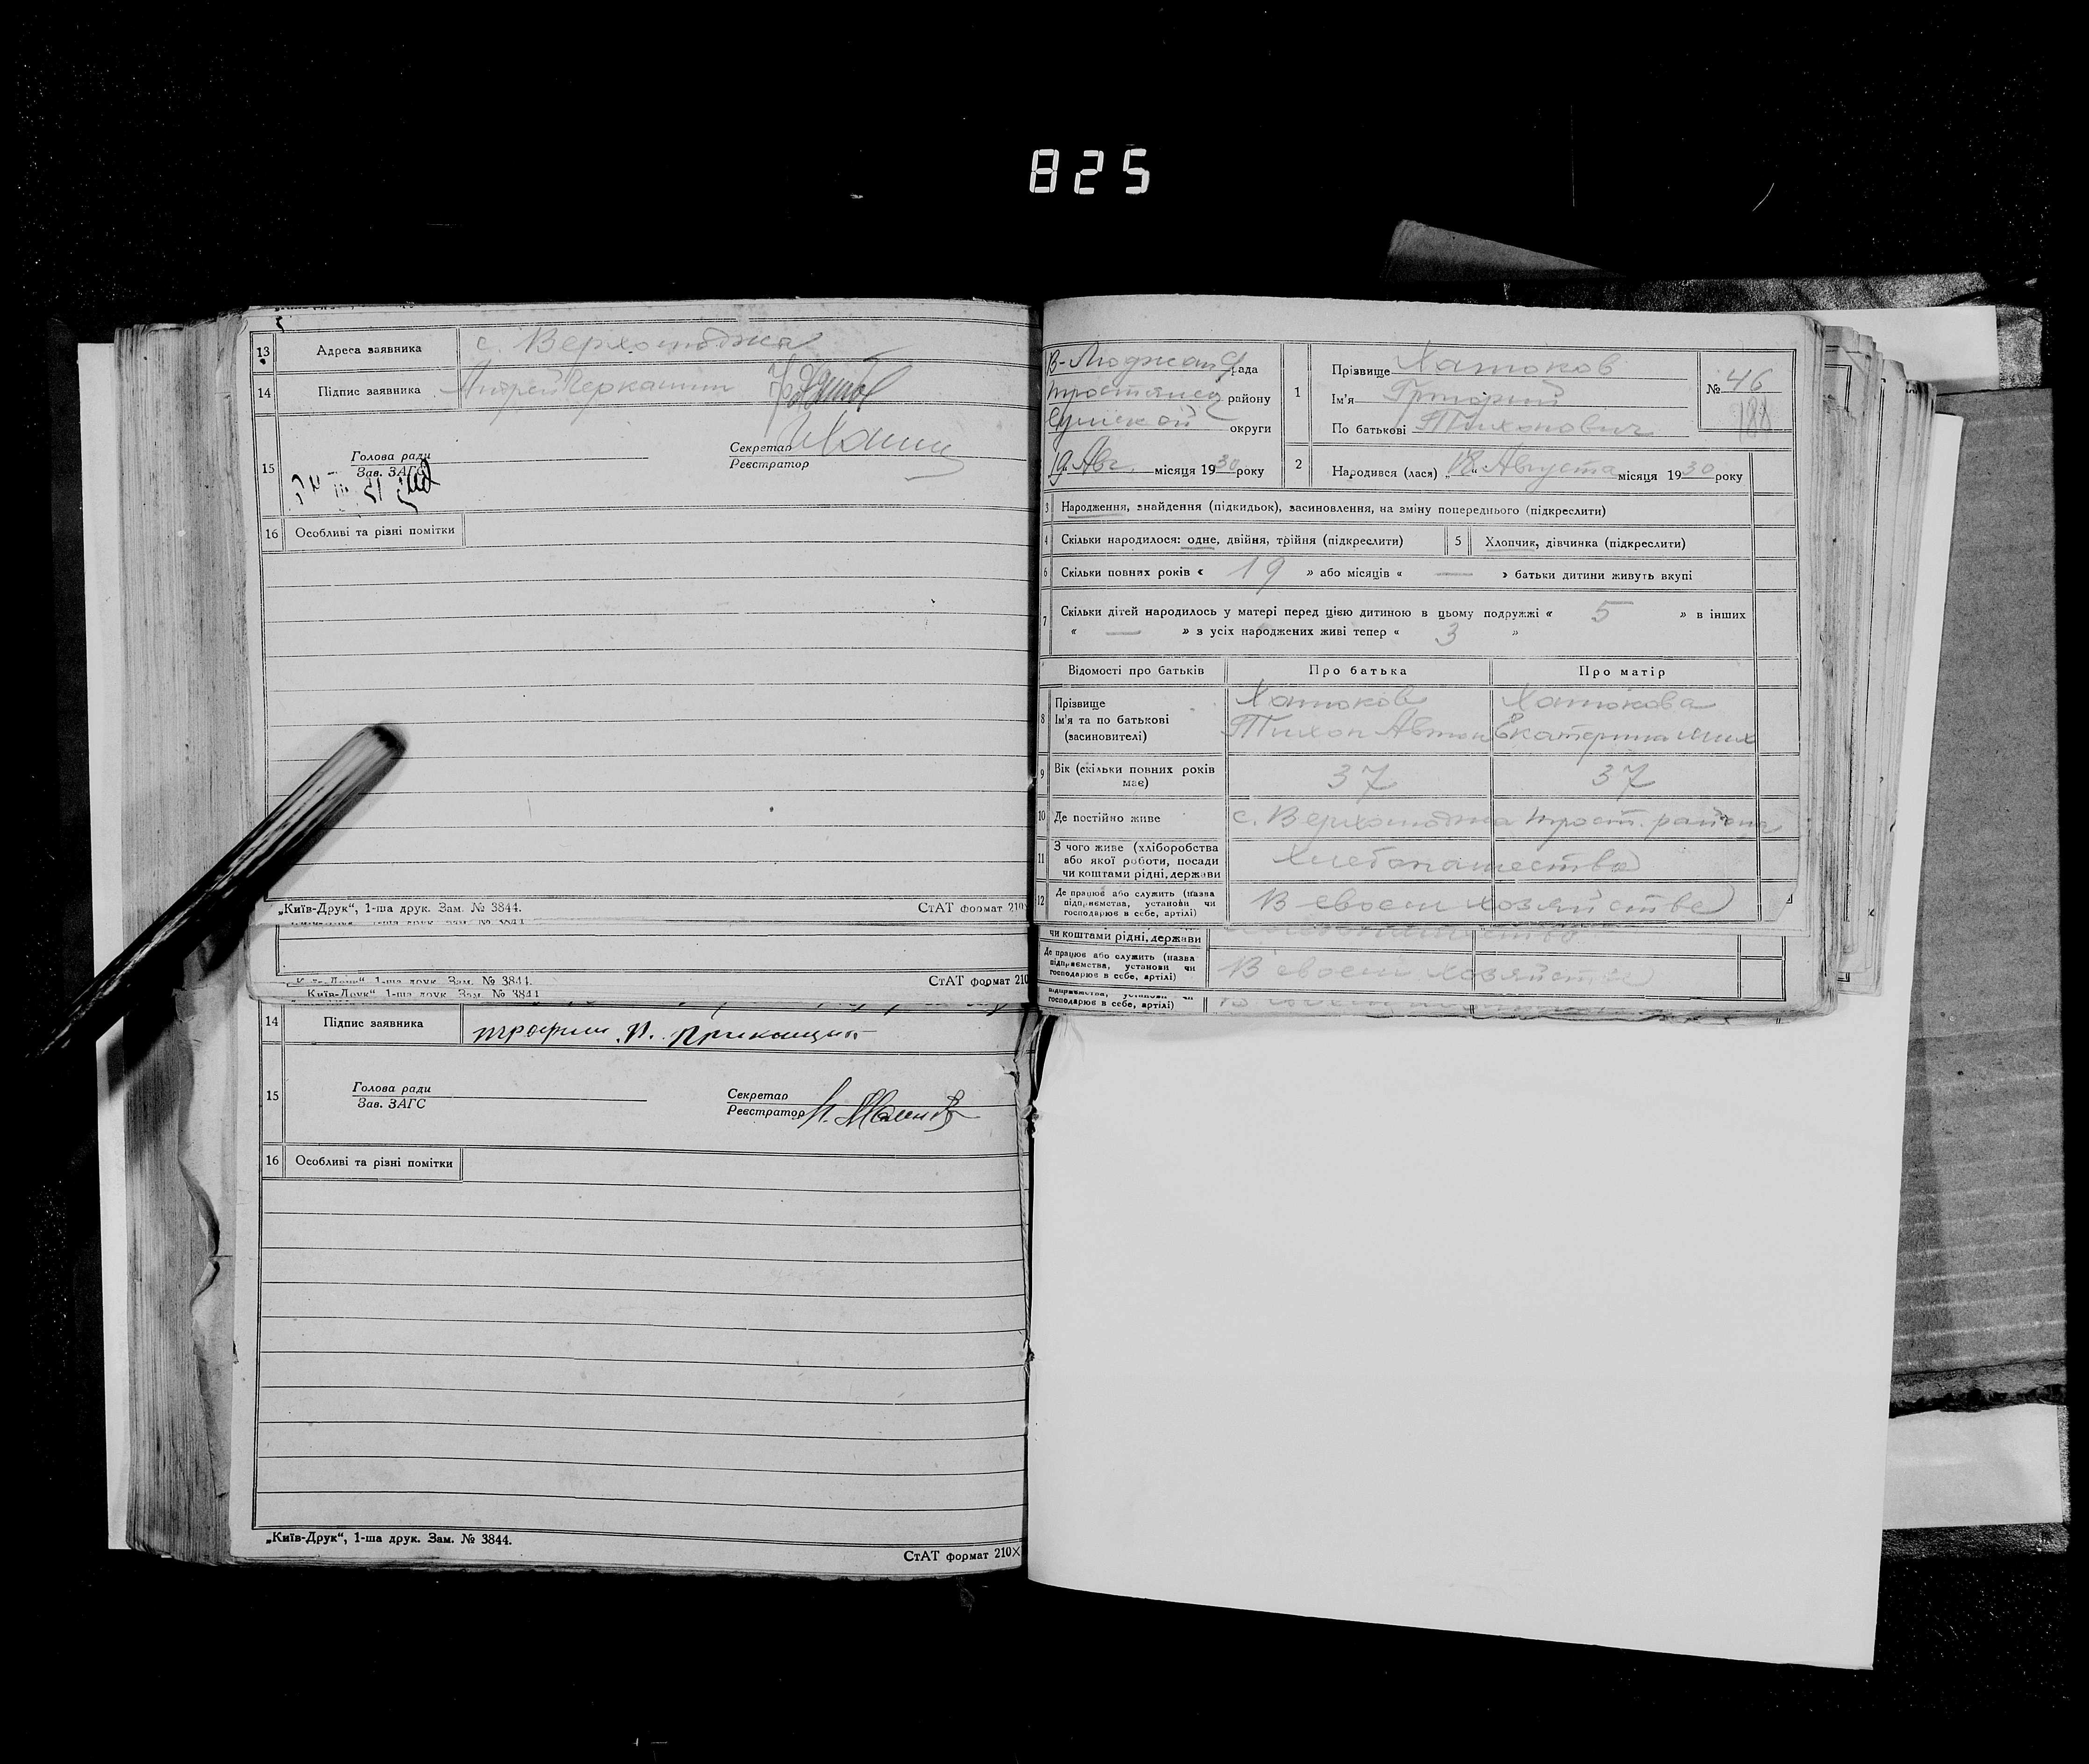 825
13 Адреса заявника с. Верхолюджа
14 Підпис заявника Андрей Черкашин
15 Голова ради
Зав. ЗАГС
Секретар
Реєстратор
16 Особливі та різні помітки
„Київ-Друк“, 1-ша друк. Зам. № 3844.
СтАТ формат 210
„Київ-Друк“ 1-ша друк. Зам. № 3844.
СтАТ формат 210
Київ-Друк“ 1-ша друк. Зам. № 3844
14 Підпис заявника
15 Голова ради
Зав. ЗАГС
Секретар
Реєстратор
16 Особливі та різні помітки
„Київ-Друк“, 1-ша друк. Зам. № 3844.
СтАТ формат 210×
В-Люджан с/рада
Тростянец району
Сумской округи
19 Авг. місяця 1930 року
1 Прізвище Хатюков
Ім'я Григорий
По батькові Тихонович
№ 46
188
2 Народився (лася) „18“ Августа місяця 1930 року
3 Народження, знайдення (підкидьок), засиновлення, на зміну попереднього (підкреслити)
4 Скільки народилося: одне, двійня, трійня (підкреслити)
5 Хлопчик, дівчинка (підкреслити)
6 Скільки повних років « 19 » або місяців « — » батьки дитини живуть вкупі
7 Скільки дітей народилось у матері перед цією дитиною в цьому подружжі « 5 » в інших
« — » з усіх народжених живі тепер « 3 »
Відомості про батьків Про батька Про матір
8 Прізвище Хатюков Хатюкова
Ім'я та по батькові Тихон Автон Екатерина Мих
(засиновителі)
9 Вік (скільки повних років має) 37 37
10 Де постійно живе с. Верхолюджа Трост. района
11 З чого живе (хліборобства
або якої роботи, посади
чи коштами рідні, держави
Хлебопашества
12 Де працює або служить (назва
підприємства, установи чи
господарює в себе, артілі)
В своем хозяйстве
чи коштами рідні, держави
Де працює або служить (назва
підприємства, установи чи
господарює в себе, артілі)
В своем хозяйстве
підприємства, установи чи
господарює в себе, артілі)